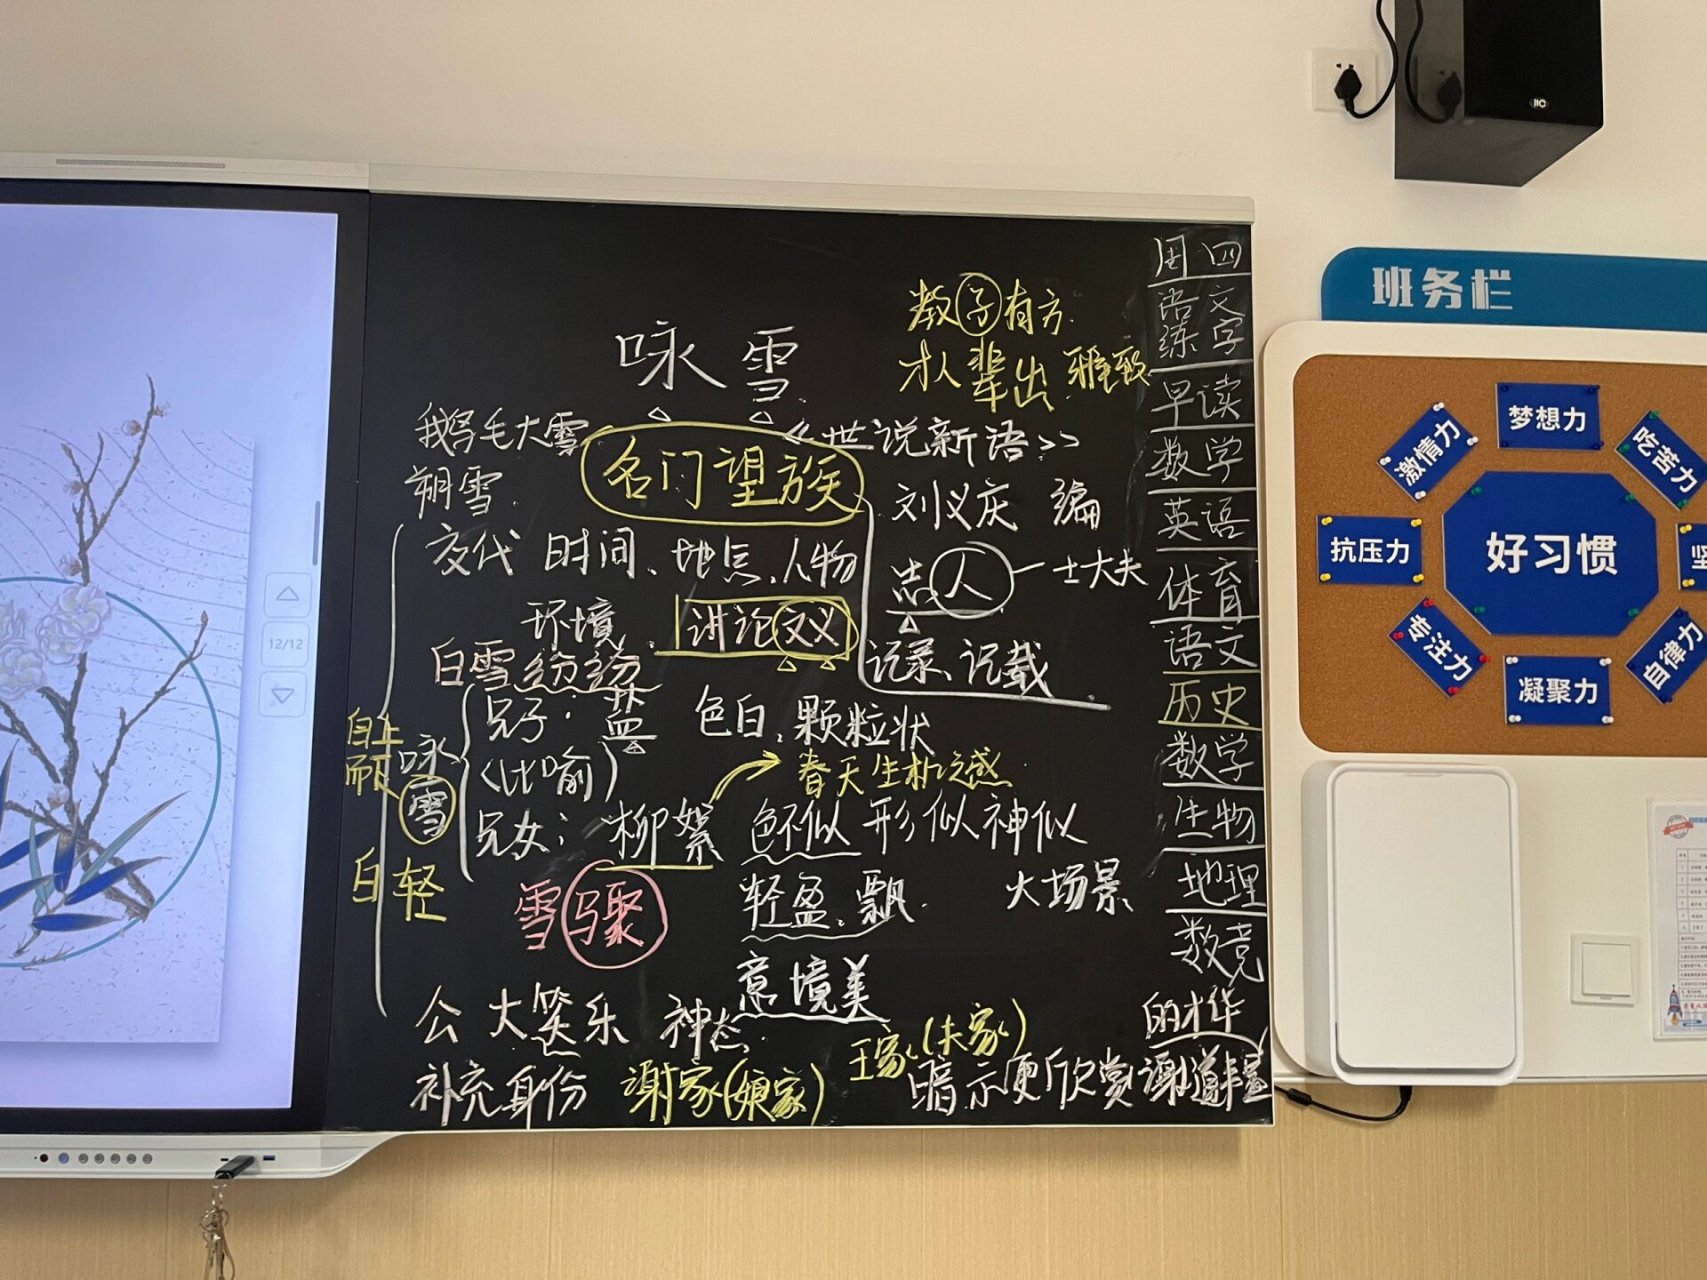 咏雪
教子有方
才人辈出 雅致
我鹅毛大雪
朔雪
名门望族
《世说新语》
刘义庆 编
志人—士大夫
记录、记载
交代 时间、地点、人物
环境、讲论文义
白雪纷纷
自上
而下
咏
雪
白轻
兄子: 盐 色白、颗粒状
(比喻)
春天生机之感
兄女: 柳絮 色不似 形似 神似
轻盈、飘 大场景
雪骤
意境美
公大笑乐 神态
补充身份 谢家(娘家)
王家(夫家)
暗示更欣赏谢道韫
的才华
周四
语文
练字
早读
数学
英语
体育
语文
历史
数学
生物
地理
数竞
12/12
班务栏
梦想力
激情力
吃苦力
抗压力
好习惯
坚
专注力
凝聚力
自律力
itC